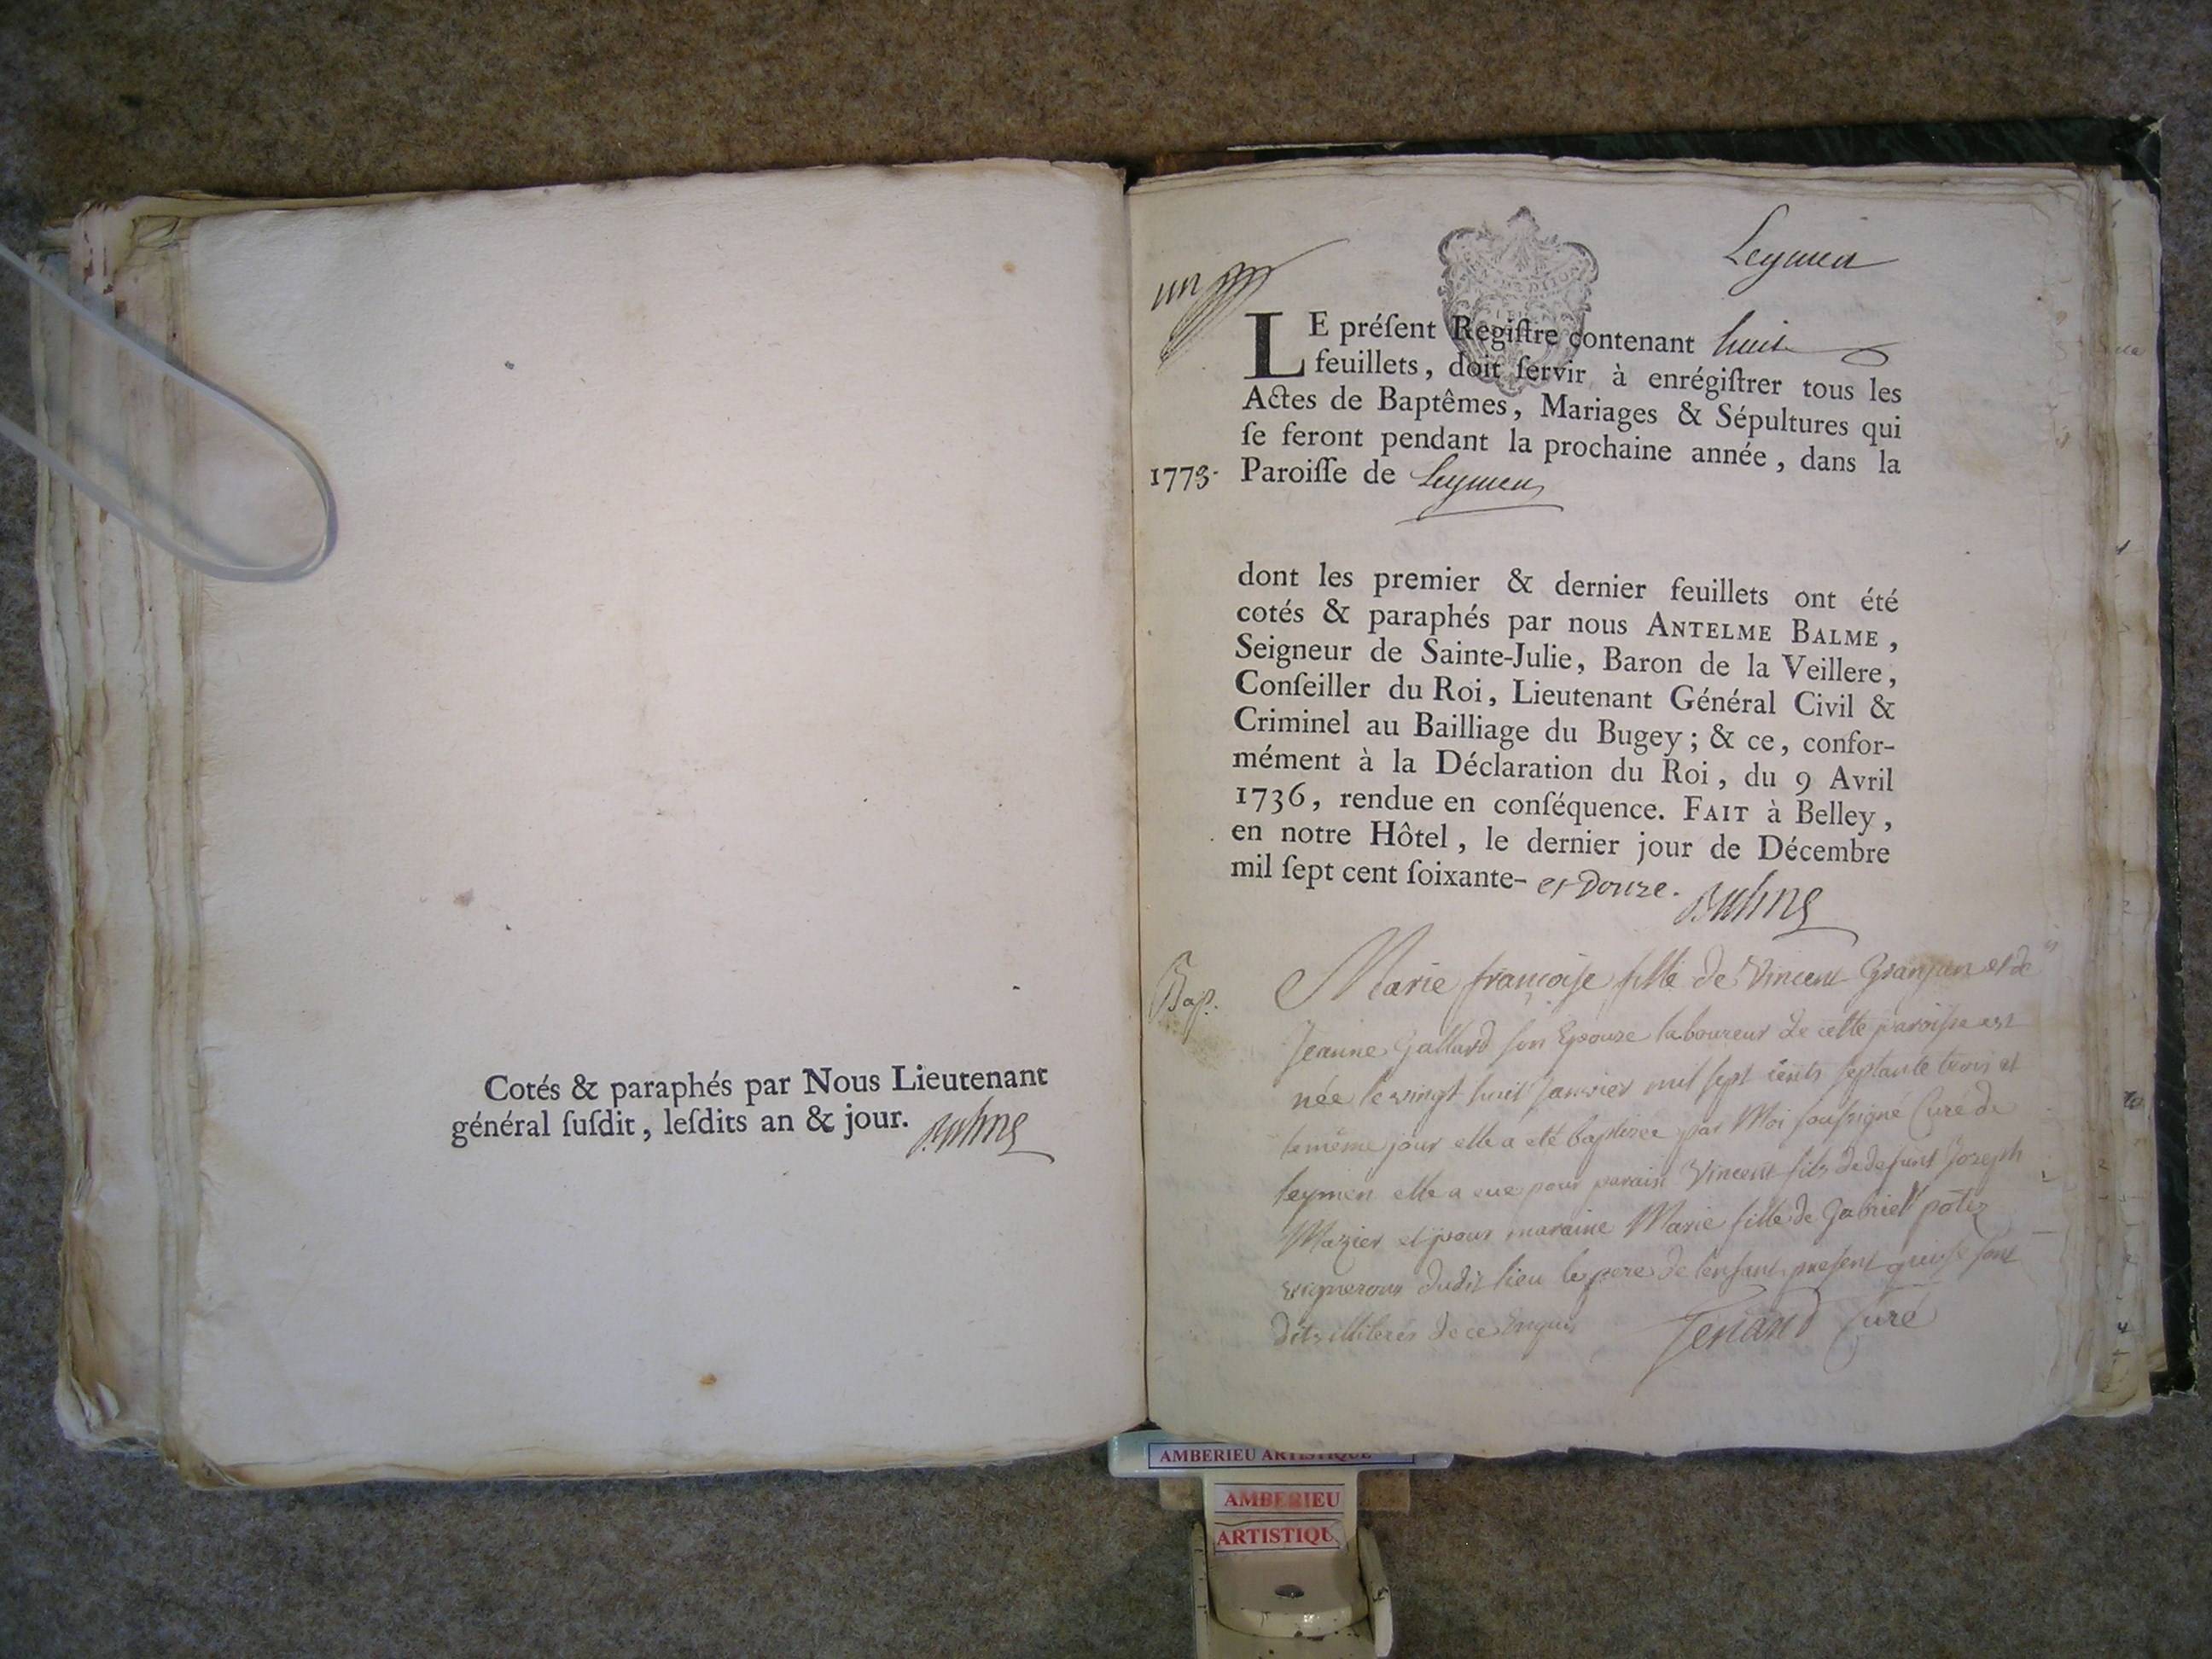 Cotés & paraphés par Nous Lieutenant
général ſuſdit, leſdits an & jour. Balme
un
Leymen
LE préſent Regiſtre contenant huit
feuillets, doit ſervir à enrégiſtrer tous les
Actes de Baptêmes, Mariages & Sépultures qui
ſe feront pendant la prochaine année, dans la
1773. Paroiſſe de Leymen
dont les premier & dernier feuillets ont été
cotés & paraphés par nous ANTELME BALME,
Seigneur de Sainte-Julie, Baron de la Veillere,
Conſeiller du Roi, Lieutenant Général Civil &
Criminel au Bailliage du Bugey; & ce, confor-
mément à la Déclaration du Roi, du 9 Avril
1736, rendue en conſéquence. FAIT à Belley,
en notre Hôtel, le dernier jour de Décembre
mil ſept cent ſoixante- et Douze. Balme
Bap. Marie françoise fille de Vincent Granjan et de
Jeanne Gallard son Epouze laboureur de cette paroisse est
née le vingt huit janvier mil sept cents septante trois et
le même jour elle a eté baptizée par Moi soussigné Curé de
leymen elle a eue pour parain Vincent fils de defunt Joseph
Mazier et pour maraine Marie fille de Gabriel potiz
vignerons dudit lieu le pere de l'enfant present qui se sont
dits illiterés de ce Enquis Tenand Curé
AMBERIEU ARTISTIQUE
AMBERIEU
ARTISTIQU